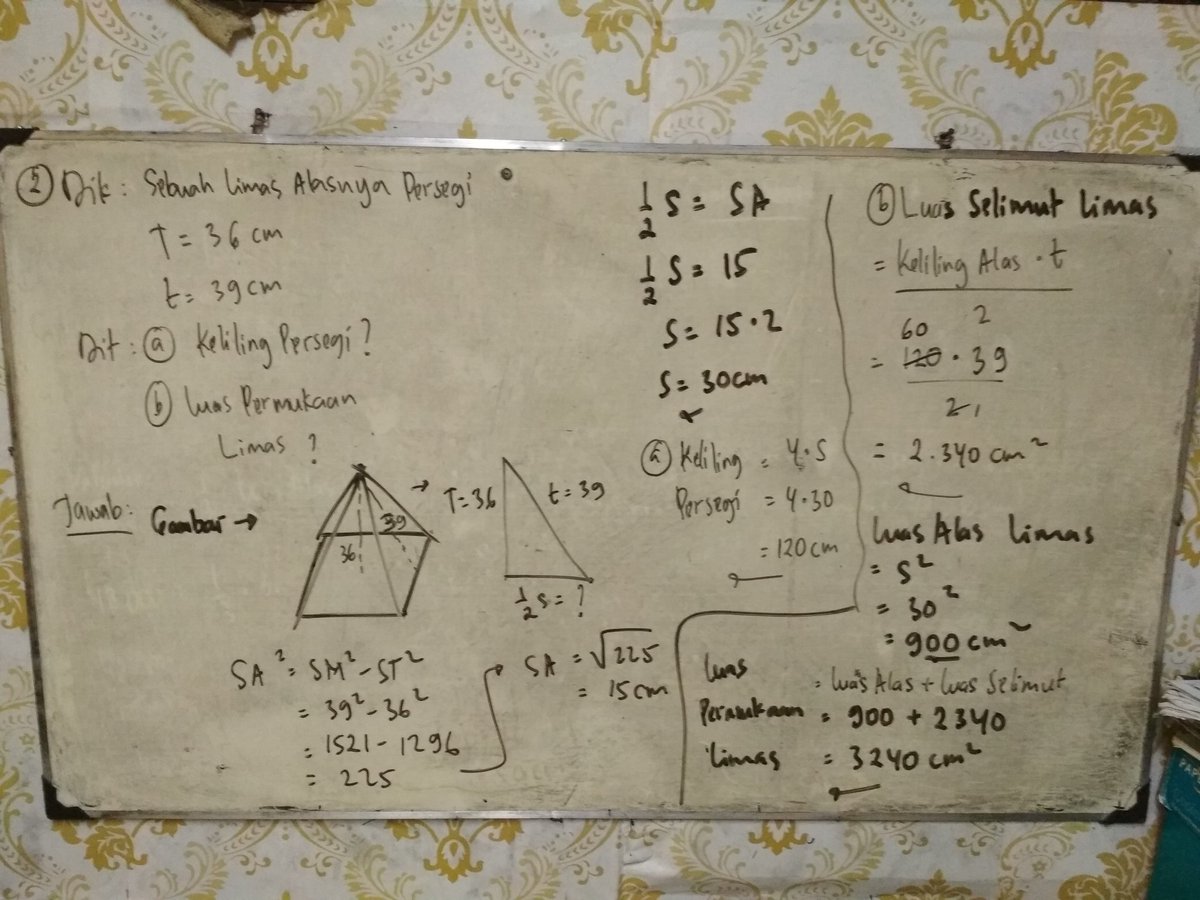 ② Dik : Sebuah Limas Alasnya Persegi
T = 36 cm
t = 39 cm
Dit : ⓐ Keliling Persegi ?
ⓑ Luas Permukaan
Limas ?
Jawab : Gambar →
36
39
→ T = 36
t = 39
1/2 s = ?
SA² = SM² - ST²
= 39² - 36²
= 1521 - 1296
= 225
SA = √225
= 15 cm
1/2 S = SA
1/2 S = 15
S = 15 . 2
S = 30 cm
ⓐ Keliling = 4 . S
Persegi = 4 . 30
= 120 cm
ⓑ Luas Selimut Limas
= Keliling Alas . t
2
60
= 120 . 39
2 1
= 2.340 cm²
Luas Alas Limas
= S²
= 30²
= 900 cm²
Luas = Luas Alas + Luas Selimut
Permukaan = 900 + 2340
Limas = 3240 cm²